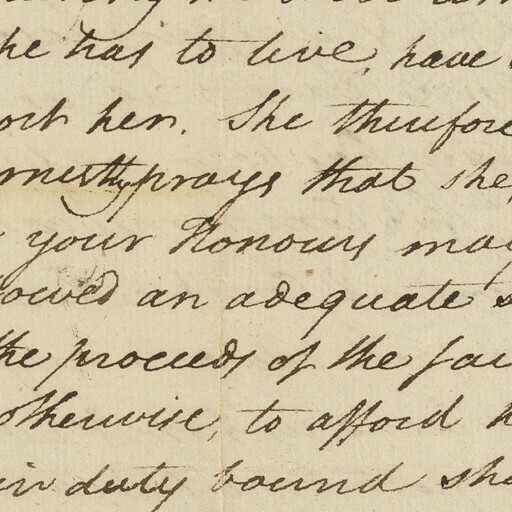 he has to live, have
ort her. She therefore
rnestly prays that she,
your Honours may
owed an adequate s
the proceeds of the fai
otherwise, to afford h
in duty bound sha